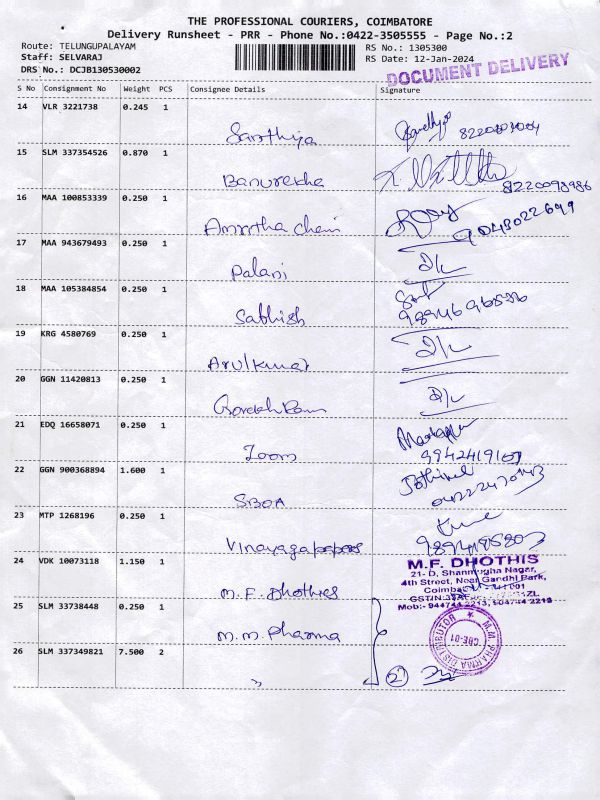 THE PROFESSIONAL COURIERS, COIMBATORE
Delivery Runsheet - PRR - Phone No.:0422-3505555 - Page No.:2
Route: TELUNGUPALAYAM
Staff: SELVARAJ
DRS No.: DCJB130530002
RS No.: 1305300
RS Date: 12-Jan-2024
DOCUMENT DELIVERY
S No Consignment No Weight PCS Consignee Details Signature
14 VLR 3221738 0.245 1
15 SLM 337354526 0.870 1
Banurekha
8220098986
16 MAA 100853339 0.250 1
Amirtha Chem
9048022699
17 MAA 943679493 0.250 1
Palani
18 MAA 105384854 0.250 1
Sathish
19 KRG 4580769 0.250 1
Arulkumar
20 GGN 11420813 0.250 1
21 EDQ 16658071 0.250 1
Zoom
22 GGN 900368894 1.600 1
SBOA
23 MTP 1268196 0.250 1
Vinayaga papers
24 VDK 10073118 1.150 1
M.F. Dhothies
M.F. DHOTHIS
21- D, Shanmugha Nagar,
4th Street, Near Gandhi Park,
25 SLM 33738448 0.250 1
M.M. Pharma
M.M. PHARMA DISTRIBUTOR
CBE-01
26 SLM 337349821 7.500 2
"
2